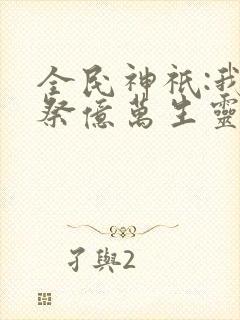 全民神祇:我
祭億萬生靈
孑與2